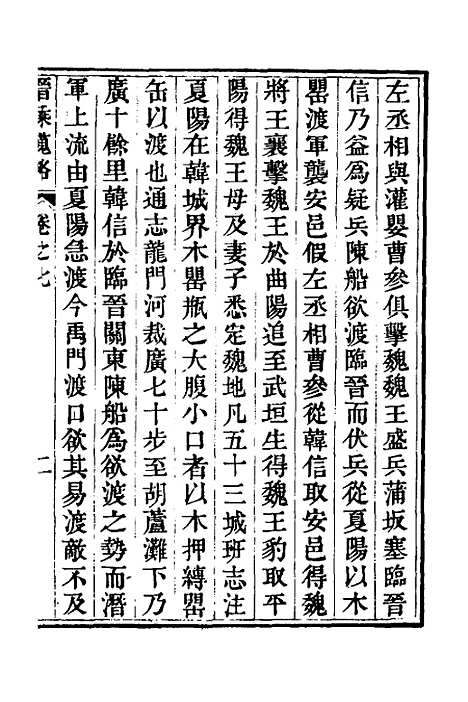 左丞相與灌嬰曹參俱擊魏魏王盛兵蒲坂塞臨晉
信乃益為疑兵陳船欲渡臨晉而伏兵從夏陽以木
罌渡軍襲安邑假左丞相曹參從韓信取安邑得魏
將王襄擊魏王於曲陽追至武垣生得魏王豹取平
陽得魏王母及妻子悉定魏地凡五十三城班志注
夏陽在韓城界木罌瓶之大腹小口者以木押縛罌
缶以渡也通志龍門河裁廣七十步至胡蘆灘下乃
廣十餘里韓信於臨晉關東陳船為欲渡之勢而潛
軍上流由夏陽急渡今禹門渡口欲其易渡敵不及
晉乘蒐略 卷之七 二